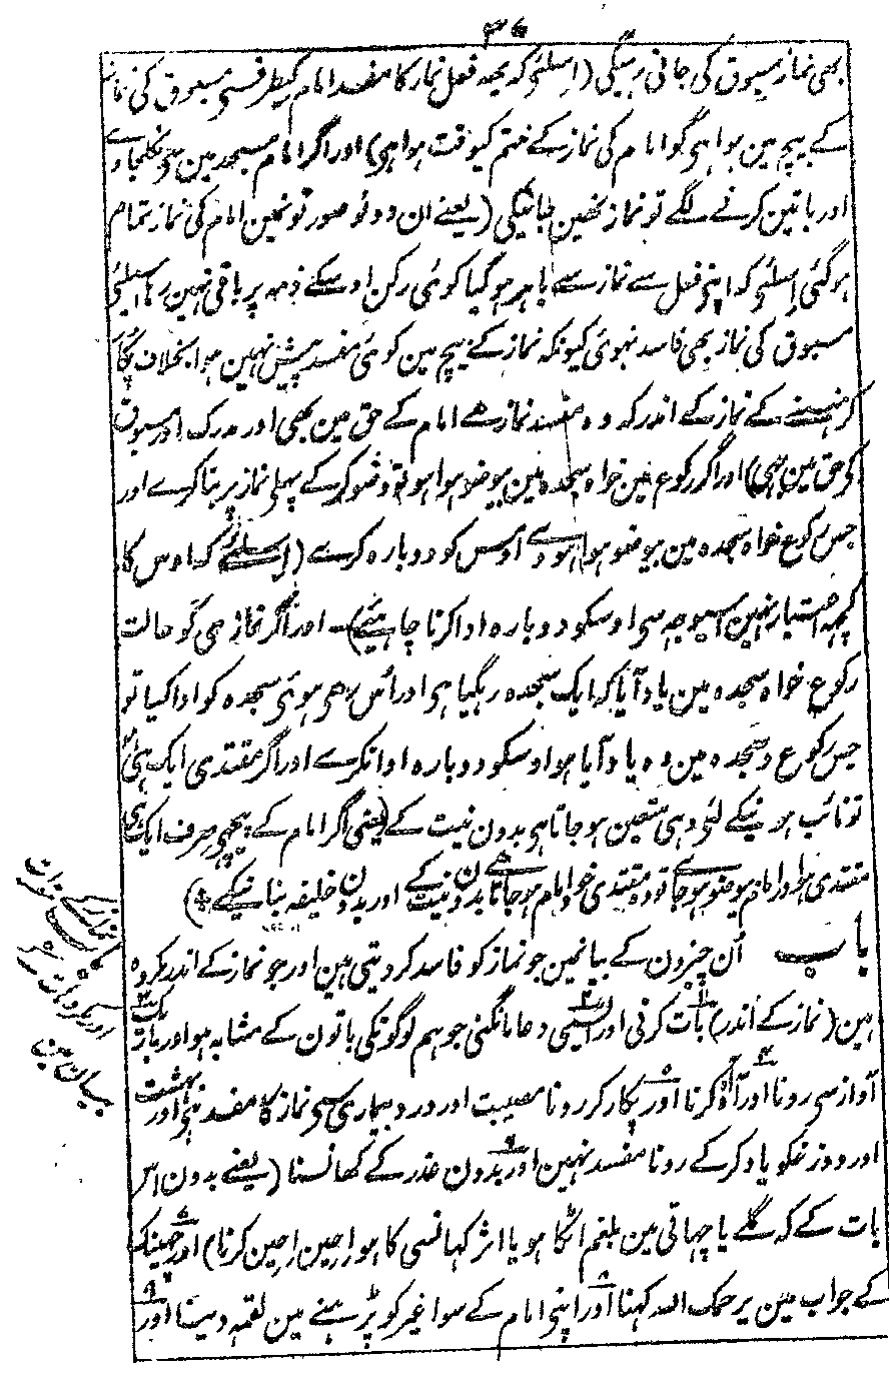 ۳۶
بھی نماز مسبوق کی جاتی رہیگی (اسلئی کہ یہہ فعل نماز کا مفسد امام کیطرف سی مسبوق کی نماز
کے بیچ مین ہوا ہی گو امام کی نماز کے ختم کیوقت ہوا ہی) اور اگر امام مسجد مین سی نکلجاوے
اور باتین کرنے لگے تو نماز نہین جائیگی (یعنے ان دونو صورتونمین امام کی نماز تمام
ہو گئی اسلئی کہ اپنی فعل سے نماز سے باہر ہو گیا کوئی رکن اوسکے ذمہ پر باقی نہین رہا اسلئی
مسبوق کی نماز بھی فاسد نہوئی کیونکہ نماز کے بیچ مین کوئی مفسد پیش نہین ہوا بخلاف
کر ہنسنے کے نماز کے اندر کہ وہ مفسد نماز ہے امام کے حق مین بھی اور مدرک اور مسبوق
کی حق مین بھی) اور اگر رکوع مین خواہ سجدہ مین بیوضو ہوا ہو تو وضو کر کے پہلی نماز پر بنا کرے اور
جس رکوع خواہ سجدہ مین بیوضو ہوا ہووے اوس کو دوبارہ کرے (اسلئے کہ اوس کا
کچہہ اعتبار نہین اسیوجہ سی اوسکو دوبارہ ادا کرنا چاہیئے) اور اگر نمازی کو حالت
رکوع خواہ سجدہ مین یاد آیا کہ ایک سجدہ رہگیا ہی اور اس رہی ہوئی سجدہ کو ادا کیا تو
جس رکوع و سجدہ مین وہ یاد آیا ہو اوسکو دوبارہ ادا نکرے اور اگر مقتدی ایک ہی
تو نائب ہونیکے لئی وہی متعین ہو جاتا ہی بدون نیت کے (یعنی اگر امام کے پیچہی صرف ایک ہی
مقتدی ہو اور امام بیوضو ہو جاے تو وہ مقتدی خود امام ہو جاتا ہے بدون نیت کے اور بدون خلیفہ بنانیکے)
باب اُن چیزون کے بیانمین جو نماز کو فاسد کر دیتی ہین اور جو نماز کے اندر مکروہ
ہین (نماز کے اندر) بات کرنی اور ایسی دعا مانگنی جو ہم لوگونکی باتون کے مشابہ ہو اور باریک
آواز سی رونا اور آہ کرنا اور پکار کر رونا مصیبت اور درد بیماری سی نماز کا مفسد ہی اور بہشت
اور دوزخکو یاد کر کے رونا مفسد نہین اور بدون عذر کے کھانسنا (یعنے بدون اس
بات کے کہ گلے یا چہاتی مین بلغم اٹکا ہو یا اثر کہانسی کا ہو اِحین اِحین کرنا) اور چہینک
کے جواب مین یرحمک اللہ کہنا اور اپنی امام کے سوا غیر کو پڑہنے مین لقمہ دینا اور
نماز کے مفسدات
اور مکروہات کے
بیان مین